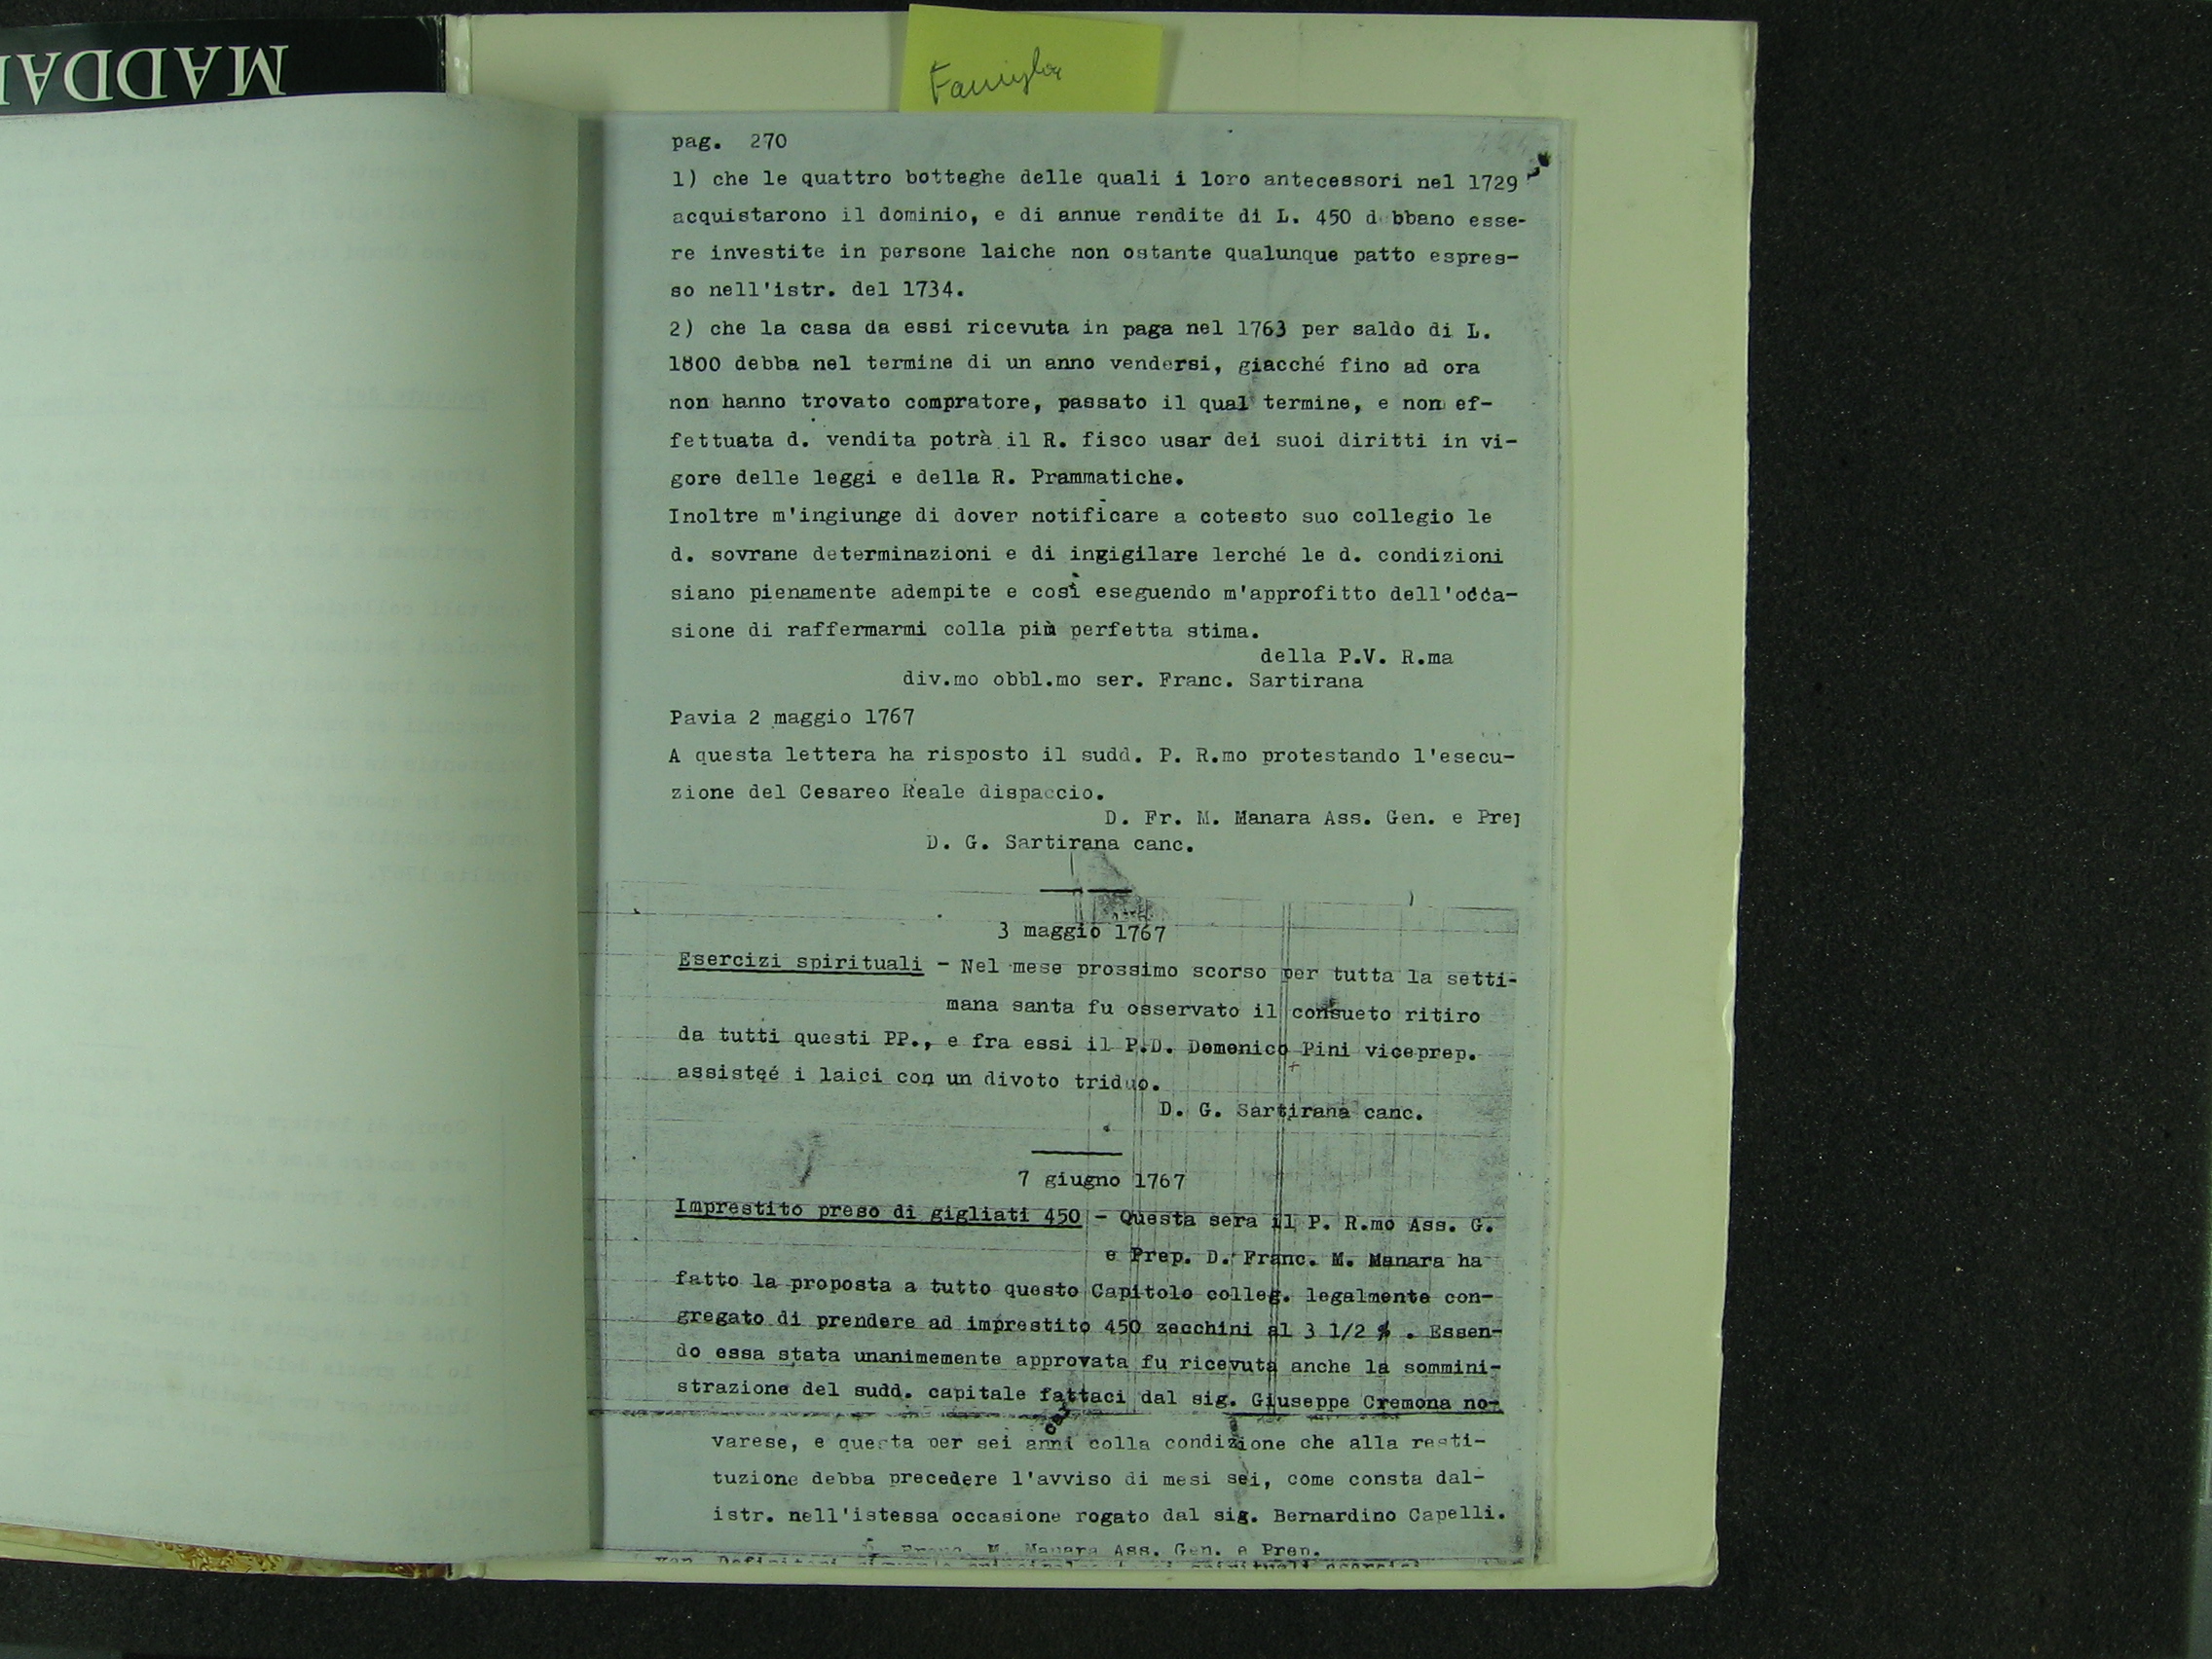 MADDA
Famiglia
pag. 270
1) che le quattro botteghe delle quali i loro antecessori nel 1729
acquistarono il dominio, e di annue rendite di L. 450 debbano esse-
re investite in persone laiche non ostante qualunque patto espres-
so nell'istr. del 1734.
2) che la casa da essi ricevuta in paga nel 1763 per saldo di L.
1800 debba nel termine di un anno vendersi, giacché fino ad ora
non hanno trovato compratore, passato il qual termine, e non ef-
fettuata d. vendita potrà il R. fisco usar dei suoi diritti in vi-
gore delle leggi e della R. Prammatiche.
Inoltre m'ingiunge di dover notificare a cotesto suo collegio le
d. sovrane determinazioni e di ingigilare lerché le d. condizioni
siano pienamente adempite e così eseguendo m'approfitto dell'occa-
sione di raffermarmi colla più perfetta stima.
della P.V. R.ma
div.mo obbl.mo ser. Franc. Sartirana
Pavia 2 maggio 1767
A questa lettera ha risposto il sudd. P. R.mo protestando l'esecu-
zione del Cesareo Reale dispaccio.
D. Fr. M. Manara Ass. Gen. e Prep
D. G. Sartirana canc.
3 maggio 1767
Esercizi spirituali - Nel mese prossimo scorso per tutta la setti-
mana santa fu osservato il consueto ritiro
da tutti questi PP., e fra essi il P.D. Domenico Pini viceprep.
assisteé i laici con un divoto triduo.
D. G. Sartirana canc.
7 giugno 1767
Imprestito preso di gigliati 450 - Questa sera il P. R.mo Ass. G.
e Prep. D. Franc. M. Manara ha
fatto la proposta a tutto questo Capitolo colleg. legalmente con-
gregato di prendere ad imprestito 450 zecchini al 3 1/2 % . Essen-
do essa stata unanimemente approvata fu ricevuta anche la sommini-
strazione del sudd. capitale fattaci dal sig. Giuseppe Cremona no-
varese, e questa per sei anni colla condizione che alla resti-
tuzione debba precedere l'avviso di mesi sei, come consta dal-
istr. nell'istessa occasione rogato dal sig. Bernardino Capelli.
Franc. M. Manara Ass. Gen. e Prep.